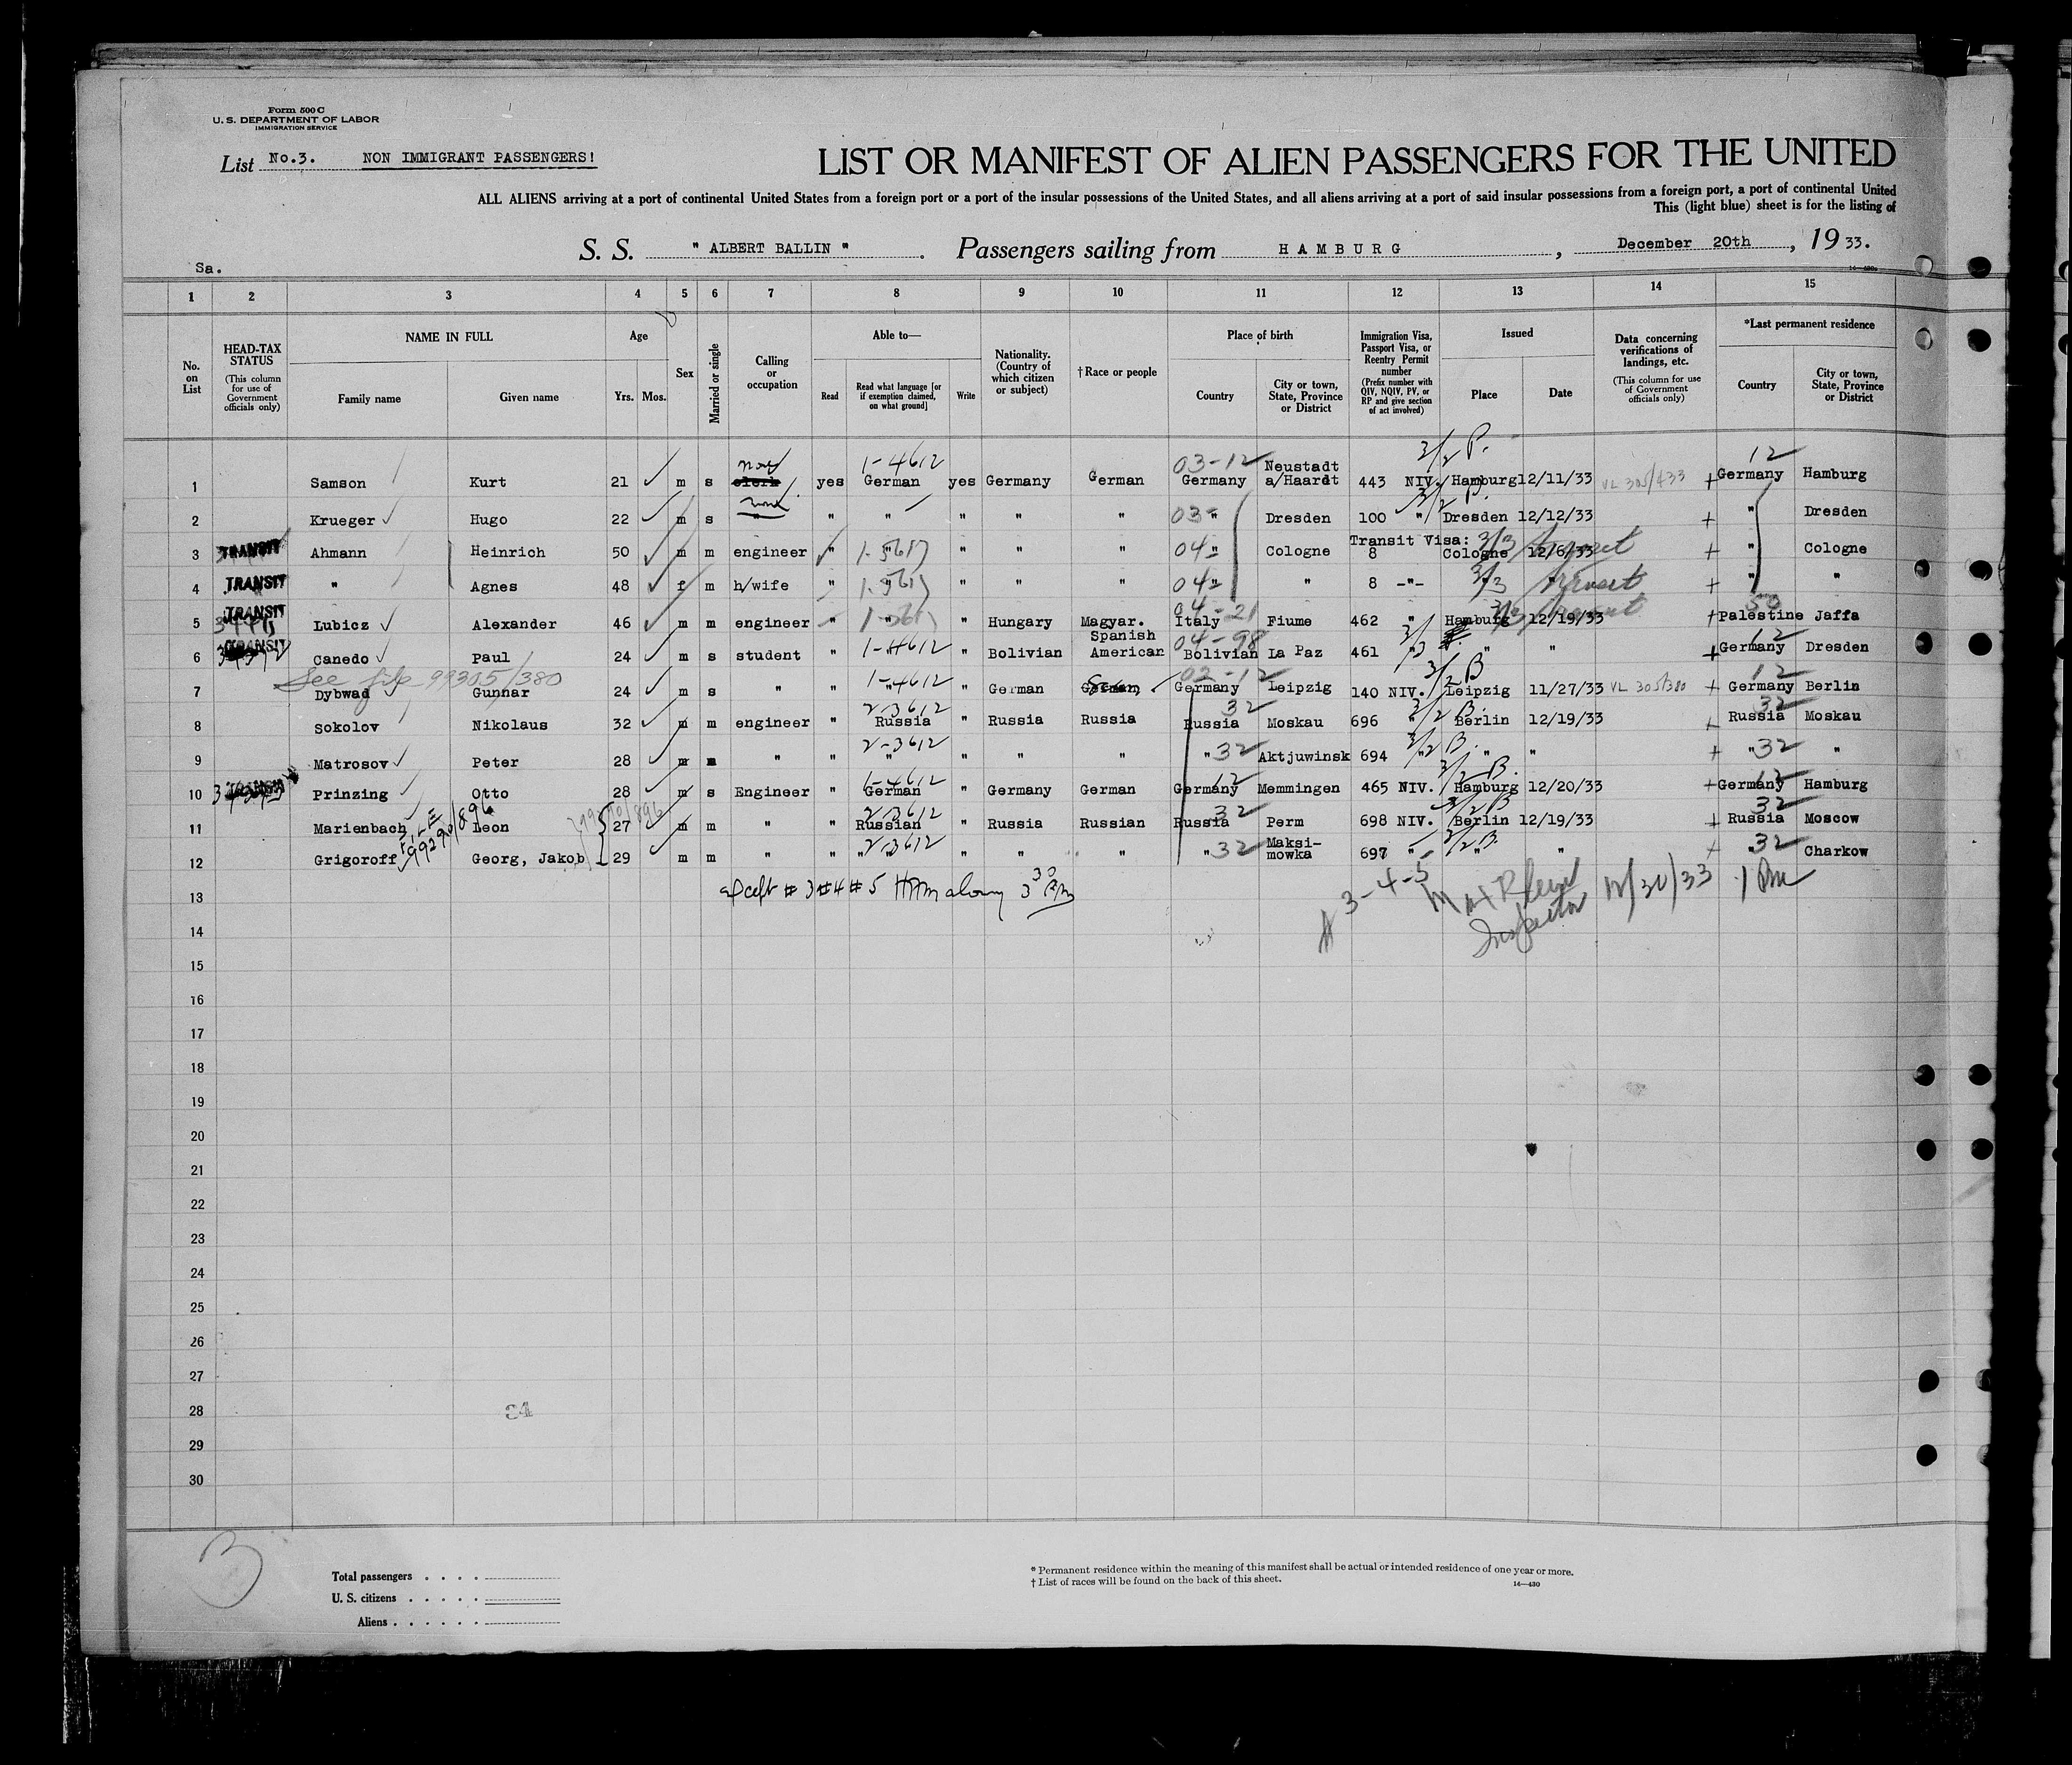 Form 500 C
U. S. DEPARTMENT OF LABOR
IMMIGRATION SERVICE
List No.3. NON IMMIGRANT PASSENGERS!
LIST OR MANIFEST OF ALIEN PASSENGERS FOR THE UNITED
ALL ALIENS arriving at a port of continental United States from a foreign port or a port of the insular possessions of the United States, and all aliens arriving at a port of said insular possessions from a foreign port, a port of continental United
This (light blue) sheet is for the listing of
S. S. " ALBERT BALLIN " . Passengers sailing from HAMBURG , December 20th , 19 33.
Sa.
14—430.
1 2 3 4 5 6 7 8 9 10 11 12 13 14 15
No. on List
HEAD-TAX STATUS (This column for use of Government officials only)
NAME IN FULL
Family name
Given name
Age
Yrs. Mos.
Sex
Married or single
Calling or occupation
Able to—
Read
Read what language [or if exemption claimed, on what ground]
Write
Nationality. (Country of which citizen or subject)
†Race or people
Place of birth
Country
City or town, State, Province or District
Immigration Visa, Passport Visa, or Reentry Permit number (Prefix number with QIV, NQIV, PV, or RP and give section of act involved)
Issued
Place
Date
Data concerning verifications of landings, etc. (This column for use of Government officials only)
*Last permanent residence
Country
City or town, State, Province or District
1 Samson Kurt 21 m s clerk none yes 1-4612 German yes Germany German 03-12 Germany Neustadt a/Haardt 443 NIV. 3/2 P. Hamburg 12/11/33 VL 305/433 + 12 Germany Hamburg
2 Krueger Hugo 22 m s " none " " " " " 03- " Dresden 100 " 3/2 B. Dresden 12/12/33 + " Dresden
3 TRANSIT Ahmann Heinrich 50 m m engineer " 1-561 " " " " 04 " Cologne Transit Visa: 8 3/3 Cologne 12/6/33 transit + " Cologne
4 TRANSIT " Agnes 48 f m h/wife " 1-561 " " " " 04 " " 8 -"- 3/3 " " transit + " "
5 TRANSIT Lubicz Alexander 46 m m engineer " 1-361 " " Hungary Magyar. 04-21 Italy Fiume 462 " 3/3 Hamburg 12/19/33 transit + 50 Palestine Jaffa
6 TRANSIT Canedo Paul 24 m s student " 1-4612 " " Bolivian Spanish American 04-98 Bolivian La Paz 461 " " " + 12 Germany Dresden
See file 99305/380
7 Dybwad Gunnar 24 m s " " 1-4612 " " German German 02-12 Germany Leipzig 140 NIV. 3/2 B Leipzig 11/27/33 VL 305/380 + 12 Germany Berlin
8 Sokolov Nikolaus 32 m m engineer " 2-3612 Russia " Russia Russia 32 Russia Moskau 696 " 3/2 B. Berlin 12/19/33 + 32 Russia Moskau
9 Matrosov Peter 28 m " " 2-3612 " " " " " 32 Aktjuwinsk 694 " 3/2 B. " " + " 32 "
10 TRANSIT Prinzing Otto 28 m s Engineer " 1-4612 German " Germany German 12 Germany Memmingen 465 NIV. 3/2 B. Hamburg 12/20/33 + 12 Germany Hamburg
11 Marienbach Leon 27 m m " " 2-3612 Russian " Russia Russian 32 Russia Perm 698 NIV. 3/2 B Berlin 12/19/33 + 32 Russia Moscow
FILE 99290/896
12 Grigoroff Georg, Jakob 29 m m " " 2-3612 " " " " " 32 Maksi-mowka 697 " 3/2 B. " " + 32 Charkow
13 # 3 # 4 # 5 3 30 Pm
# 3-4-5 Inspector 12/30/33 1 Pm
14
15
16
17
18
19
20
21
22
23
24
25
26
27
28 34
29
30
3
Total passengers . . . .
U. S. citizens . . . . .
Aliens . . . . . .
* Permanent residence within the meaning of this manifest shall be actual or intended residence of one year or more.
† List of races will be found on the back of this sheet.
14—430